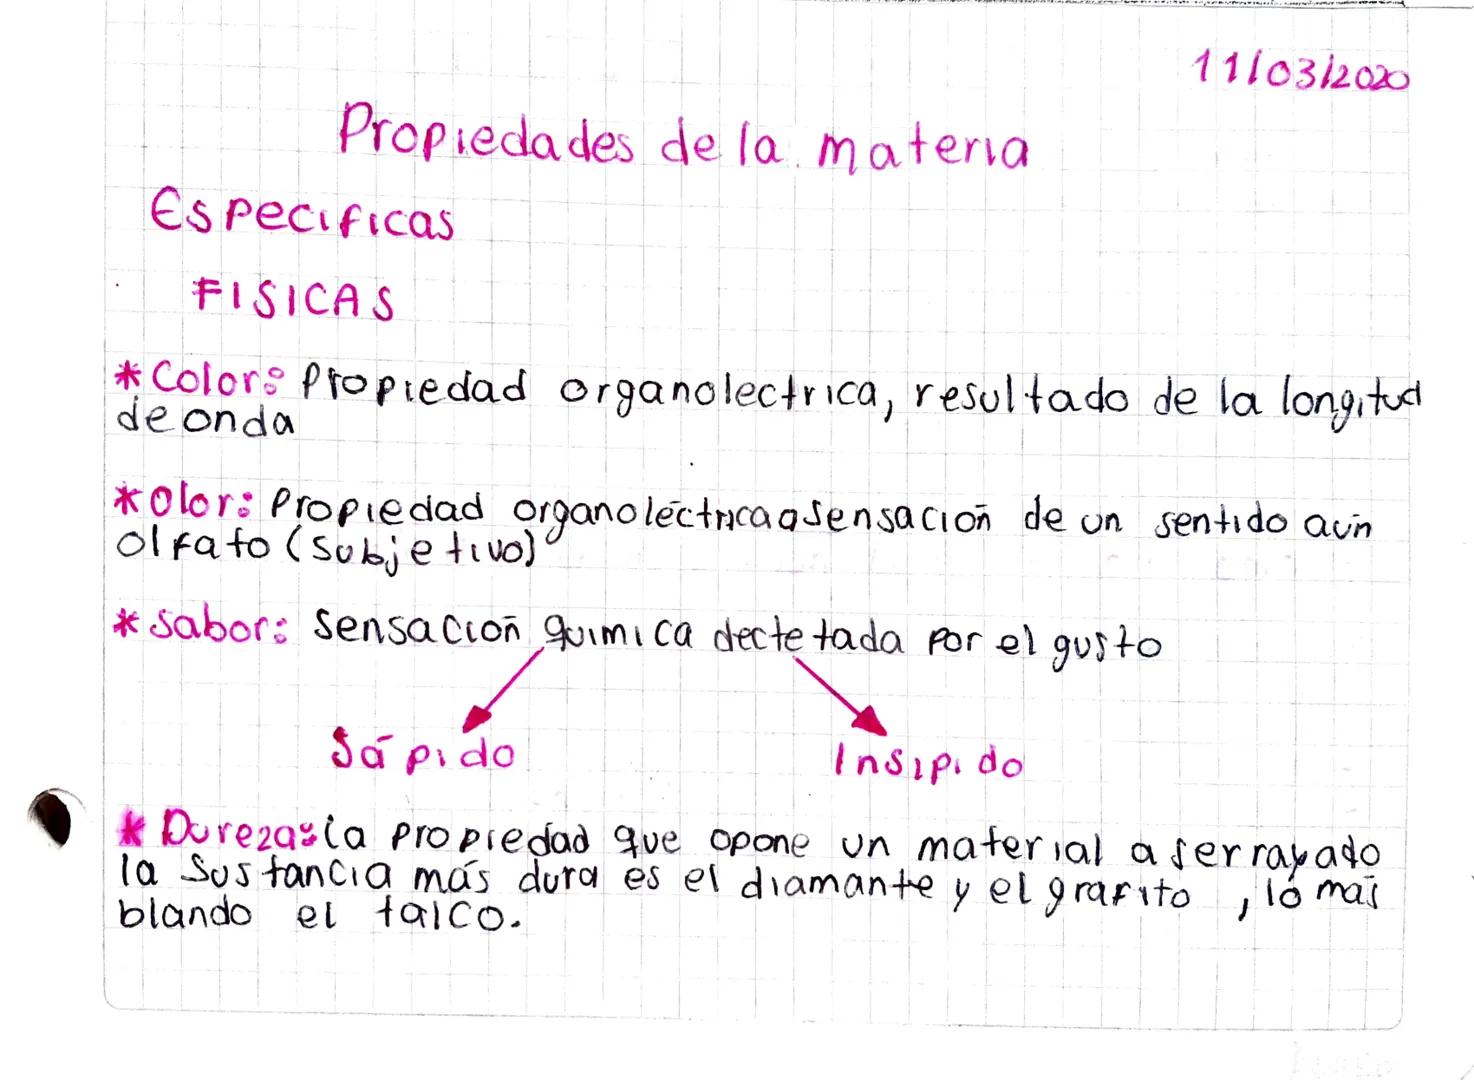 11/03/2020
Propiedades de la materia
Especificas
FISICAS
*Color: Propiedad organolectrica, resultado de la longitud
de onda
*Olor: Propiedad organoléctrica a sensación de un sentido aún
olfato (subjetivo)
*Sabor: Sensación quimica dectetada por el gusto
Sápido Insipido
*Dureza: la propiedad que opone un material a ser rayado
la sustancia más dura es el diamante y el grafito , ló más
blando el talco.